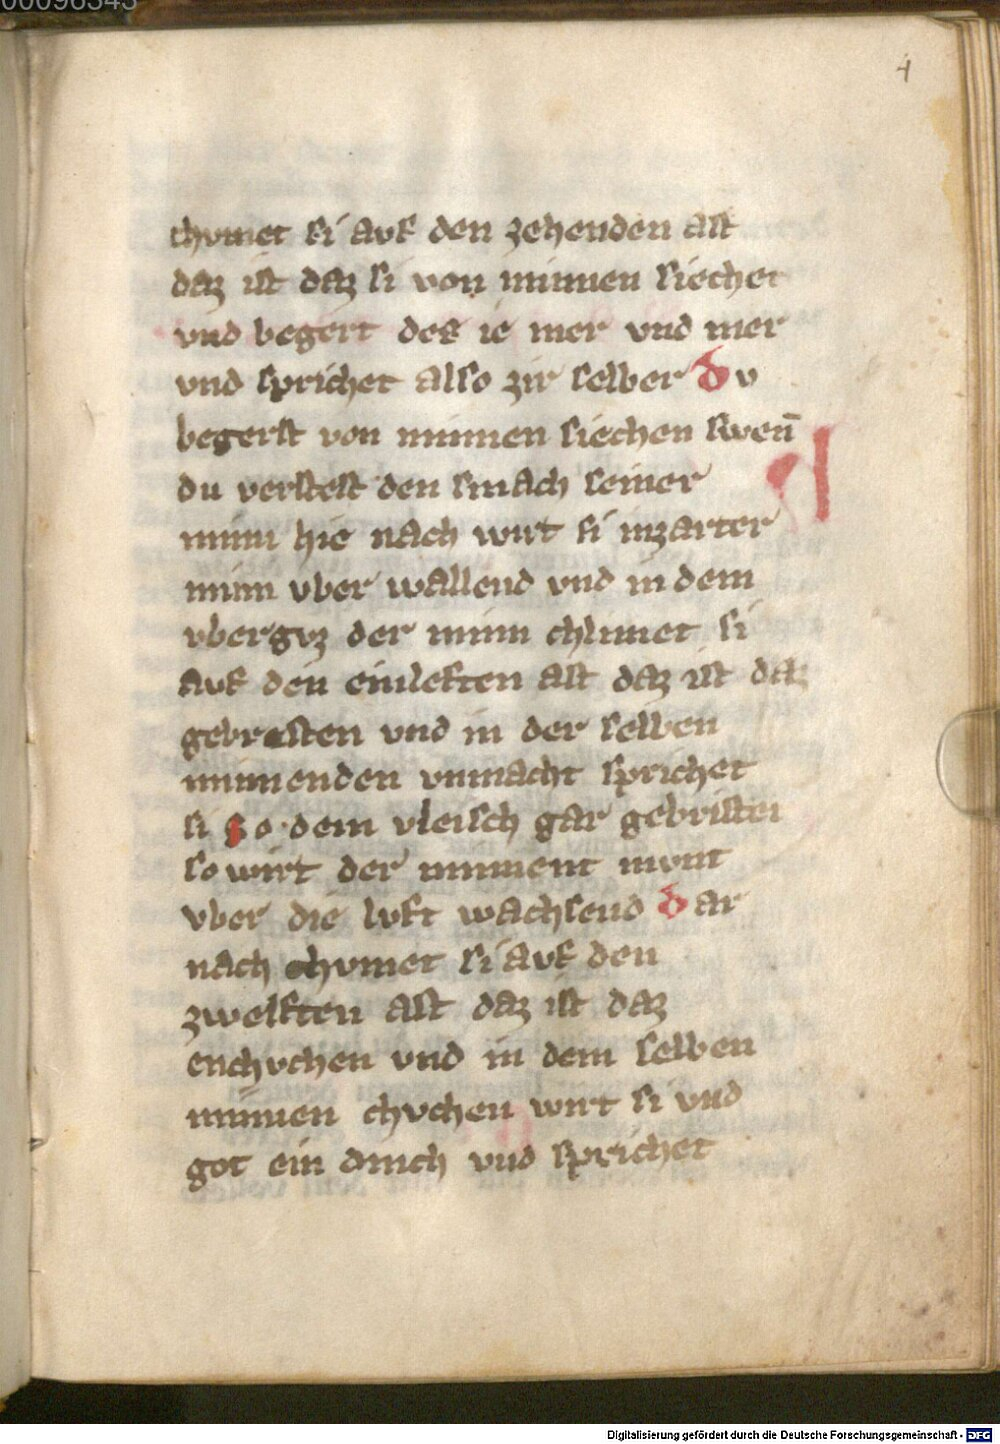 00096343
4
chvmet si avf den zehenden ast
daz ist daz si von minnen siechet
vnd begert des ie mer vnd mer
vnd sprichet also zir selber Dv
begerst von minnen siechen swen̄
du verstest den smach seiner
minn hie nach wirt si inzarter
minn vber wallend vnd in dem
vbergvz der minn chlimet si
avf den einleften ast daz ist daz
gebresten vnd in der selben
minnenden vnmacht sprichet
si So dem vleisch gar gebristet
so wirt der minnent mvnt
vber die lvft wachsend Dar
nach chvmet si avf den
zwelften ast daz ist daz
enchvchen vnd in dem selben
minnen chvchen wirt si vnd
got ein dinch vnd sprichet
Digitalisierung gefördert durch die Deutsche Forschungsgemeinschaft - DFG